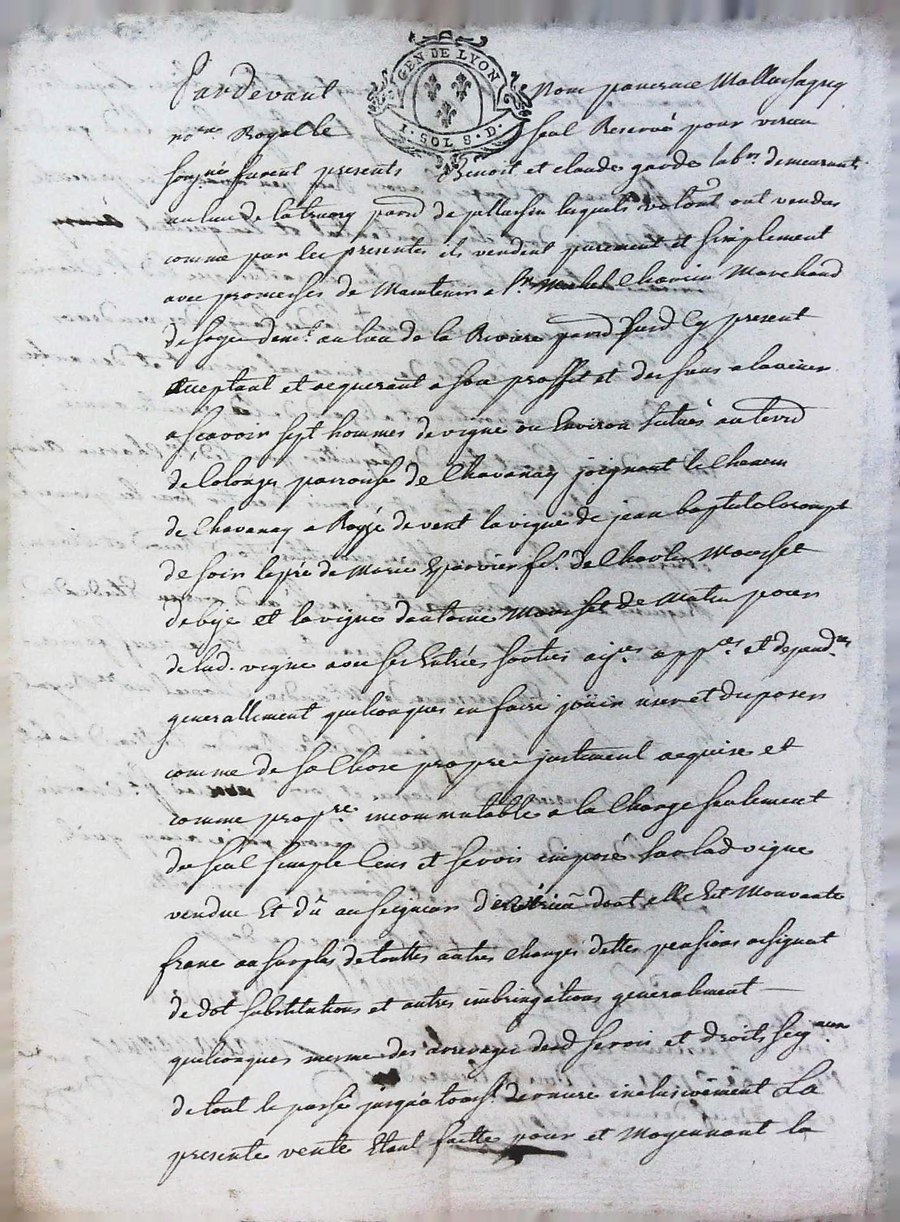 GEN DE LYON
1 · SOL 8 · D ·
Pardevant Nous pancrace
no^re. Royal le seul Reservé pour
soigné furent presents Benoit et claude garde lab^rs. demeurants
au lieu de parr^d de pellussin lequels volont^t ont vendus
comme par les presentes ils vendent purement et simplement
avec promesses de Maintenir a s^r. Michel Marchand
de soye dem^t. au lieu de la Riviere parr^d sur^d Cy present
acceptant et acquerant a son proffit et des siens a lavenir
ascavoir sept hommes de vigne ou Environ situés au terr^d
de Colonge parroisse de Chavanay joignant le Chemin
de Chavanay a de vent la vigne de jean baptiste
de soir le pré de Marie fe^e. de Charles Mousset
de bize et la vigne dantoine Mousset de Matin pour
de lad. vigne avec ses Entrées sorties aig^es app^ces et depand^ces
generallement quelconques en faire joüir user et disposer
comme de sa Chose propre justement acquise et
comme prop^re. incommutable a la Charge seulement
du seul simple Cens et servis imposé sur lad vigne
vendue Et dû au seigneur dont elle Est Mouvante
franc au surplus de touttes autres Charges dettes pensions assignat
de dot substitutions et autres imbringations generalement
quelconques mesme des arrerages dud servis et droits seig^aux
de tout le passé jusqua tous^t. derniere inclusivement La
presente vente Etant faitte pour et Moyennant la